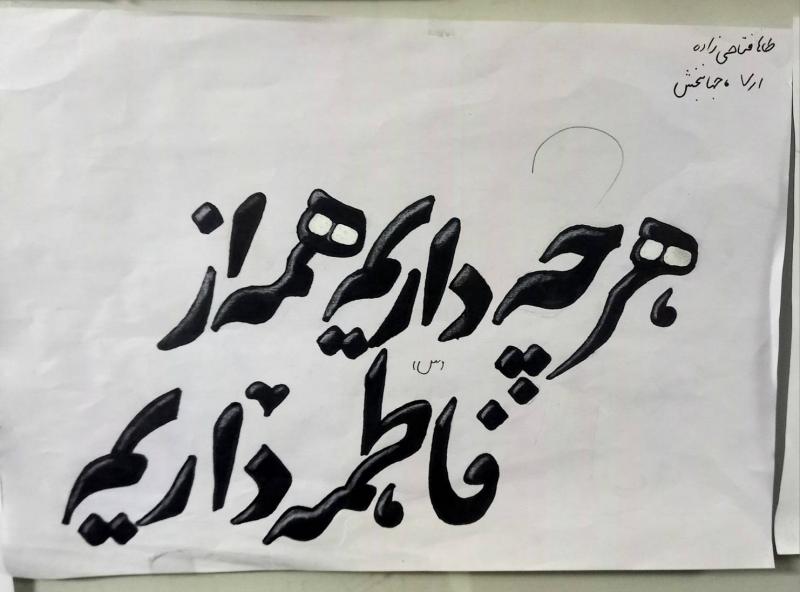 طاها فتاحی زاده
هرچه داریم همه از
(س)
فاطمه داریم